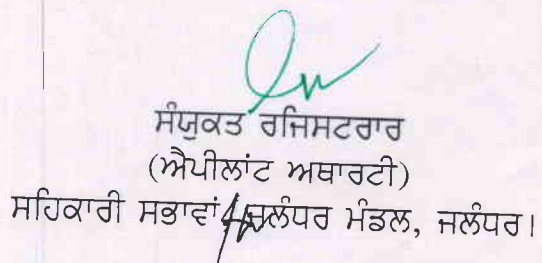 ਸੰਯੁਕਤ ਰਜਿਸਟਰਾਰ
(ਐਪੀਲਾਂਟ ਅਥਾਰਟੀ)
ਸਹਿਕਾਰੀ ਸਭਾਵਾਂ ਜਲੰਧਰ ਮੰਡਲ, ਜਲੰਧਰ।